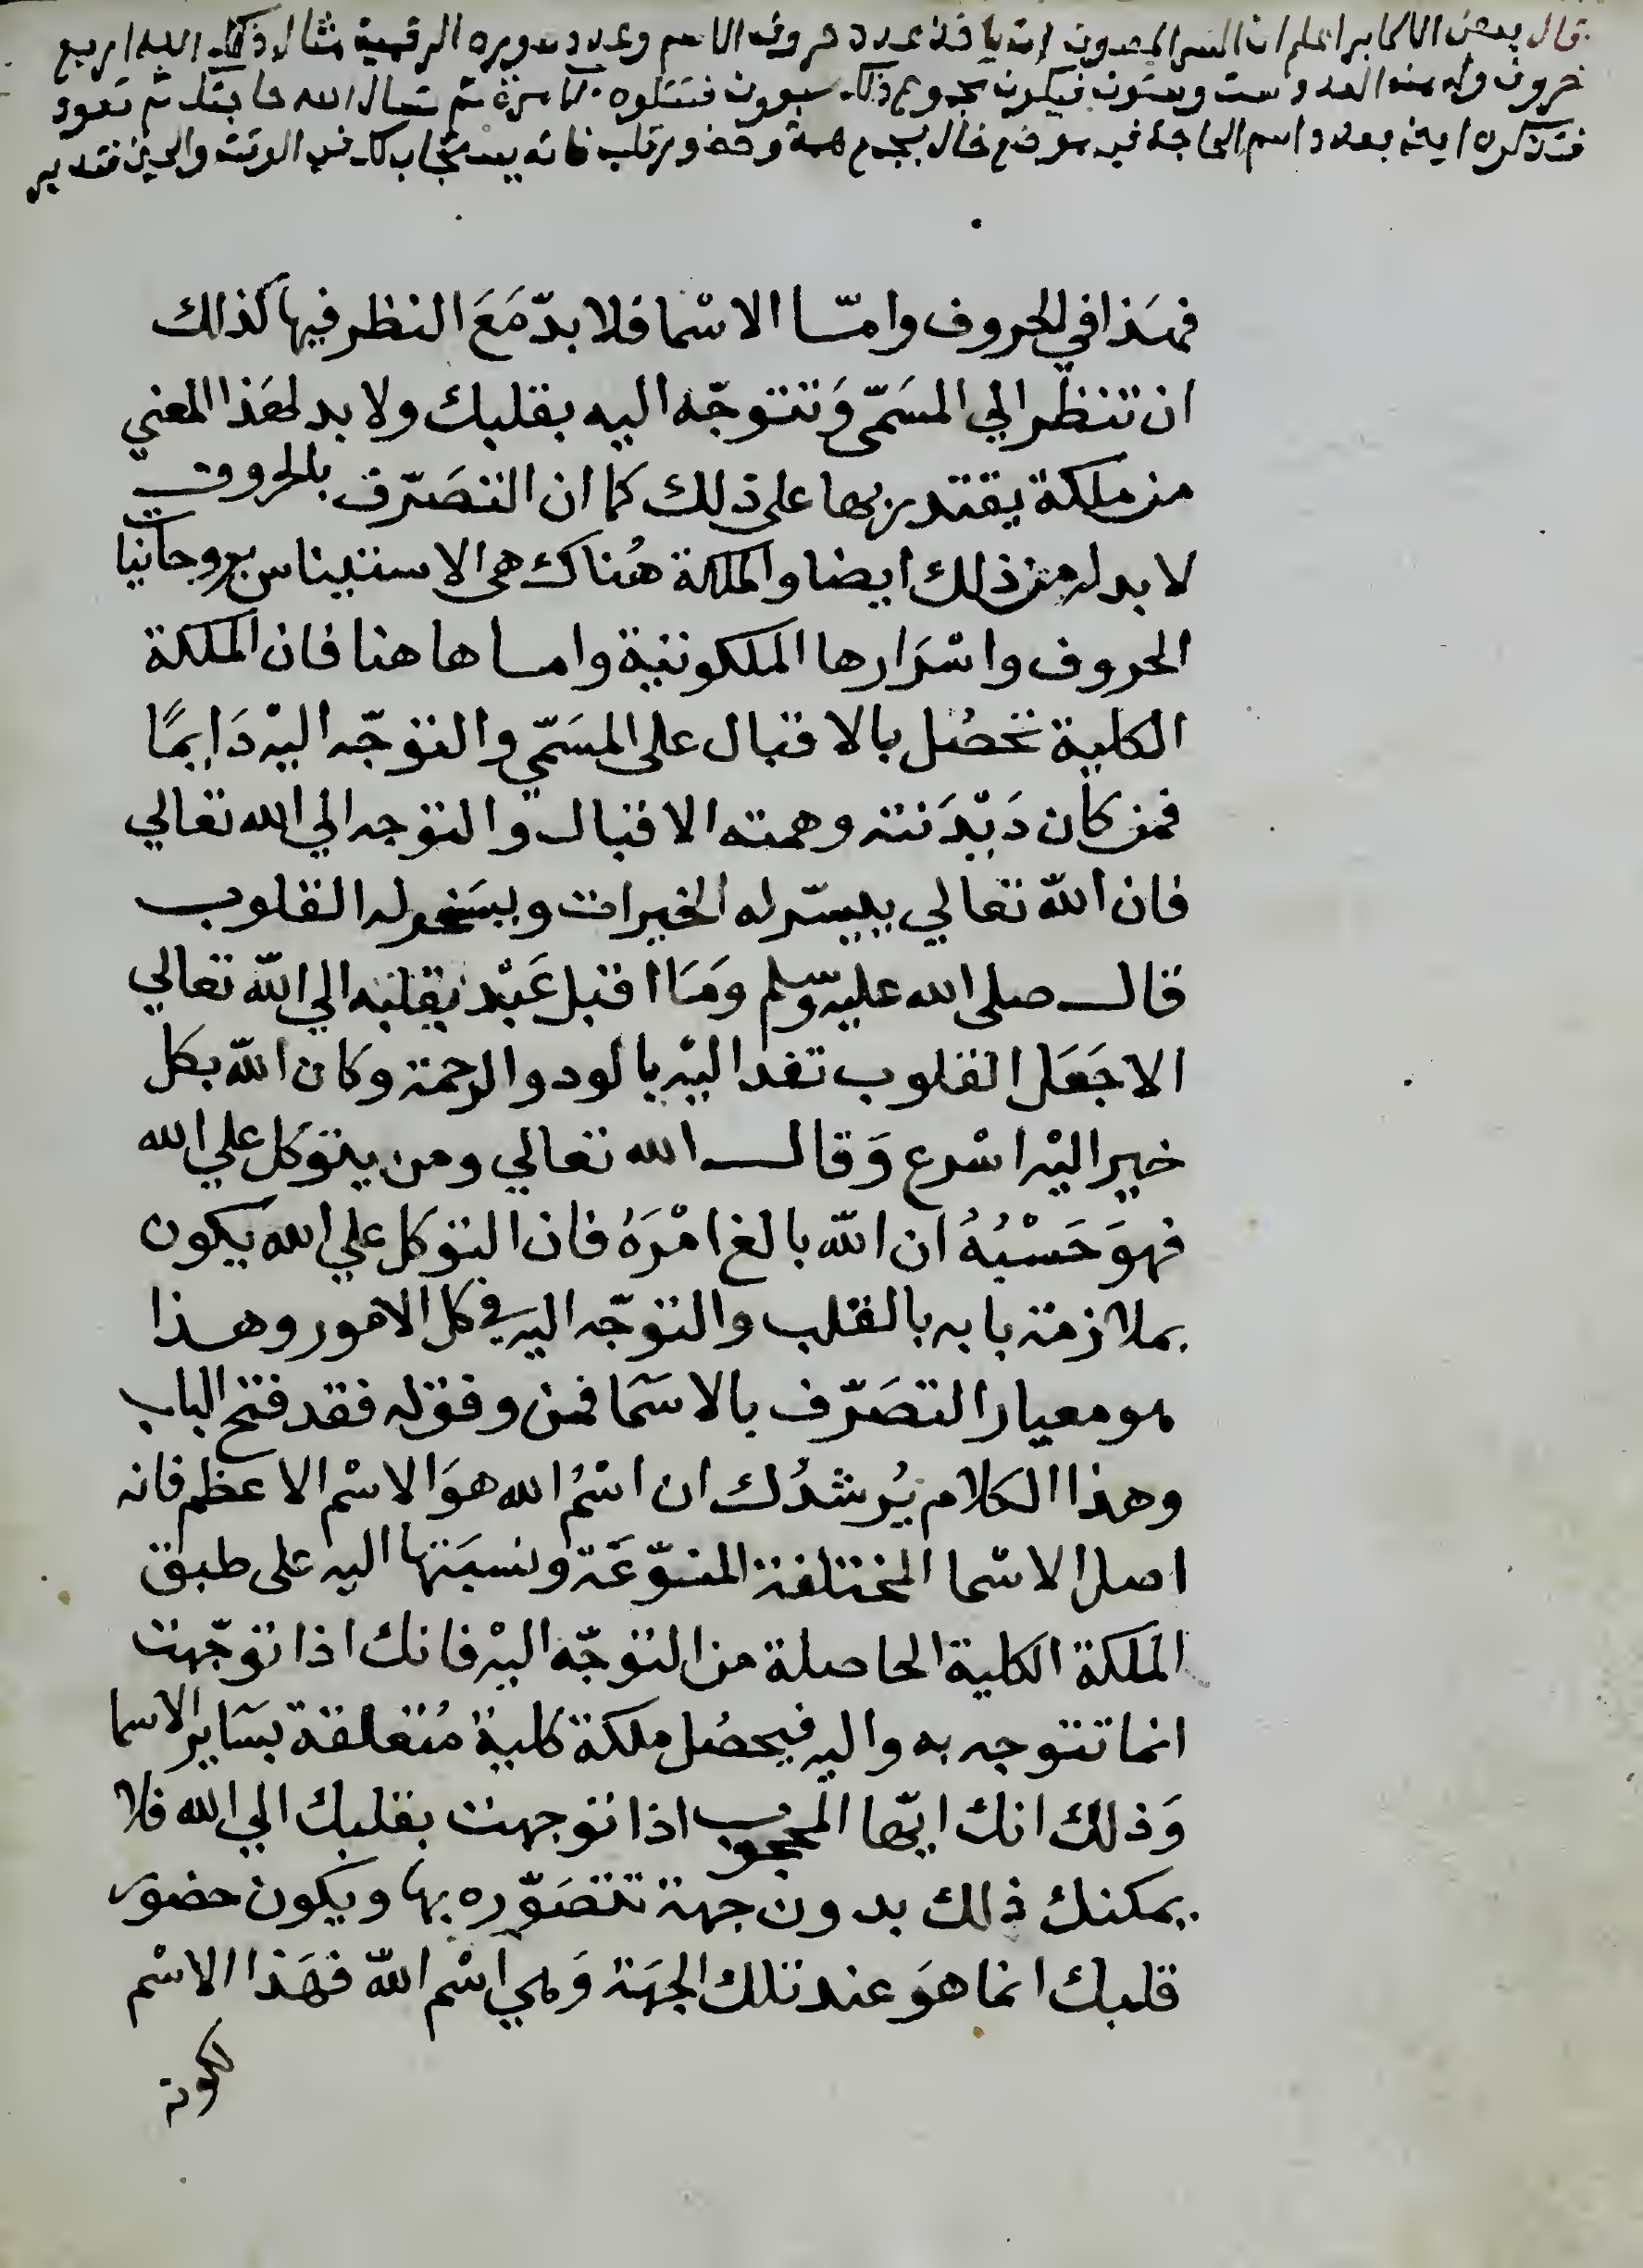 قال بعض الاكابر اعلم ان السر المصون ان ياخذ عدد حروف الاسم وعدد صوره الرقمية مثال ذلك الله اربع
حروف وله من العدد ست وستون فيكون مجموع ذلك سبعون فتتلوه مرة ثم تسال الله حاجتك ثم تعود
فتذكره ايضا بعدد اسم الحاجة في موضع خال بجمع همة وحضور قلب فانه يستجاب لك في الوقت والحين فتدبر
فهَذا في الحروف وامّا الاسْما فلا بدّ مَعَ النظر فيها كذلك
ان تنظر الي المسَمّى وَتتوجّه اليه بقلبك ولا بد لهَذا المعني
من ملكة يقتدر بها على ذلك كما ان التصَرّف بالحروف
لا بد له من ذلك ايضا والملكة هُناك هى الاستيناس بروحانيا
الحروف واسْرَارها الملكوتية واما هاهنا فان الملكة
الكلية تحصُل بالاقبال على المسَمّي والتوجّه اليْه دَايمًا
فمن كان دَيْدَنته وهمته الاقبال والتوجه الي الله تعالي
فان الله تعالي ييسّر له الخيرات ويسَخر له القلوب
قال صلى الله عليه وسلم وَمَا اقبل عَبْد بقلبه الي الله تعالي
الا جَعَل القلوب تفد اليْه بالود والرحمة وكان الله بكل
خير اليْه اسْرع وَقال الله تعالي ومن يتوكل علي الله
فهوَ حَسْبُهُ ان الله بالغ امْرَهُ فان التوكل علي الله يكون
بملازمة بابه بالقلب والتوجّه اليه في كل الامور وهذا
هو معيار التصَرّف بالاسَما فمن وفق له فقد فتح الباب
وهذا الكلام يُرشدُك ان اسْمُ الله هوَ الاسْم الاعظم فانه
اصل الاسْما المختلفة المنوّعَة ونسبَتها اليه على طبق
الملكة الكلية الحاصلة من التوجّه اليْه فانك اذا توجّهت
انما تتوجه به واليه فيحصُل ملكة كلية مُتعلقة بسَاير الاسما
وَذلك انك ايّها المحجوب اذا توجهت بقلبك الي الله فلا
يمكنك ذلك بدون جهة تتصَوّره بها ويكون حضور
قلبك انما هوَ عند تلك الجهَة وَهي اسْم الله فهَذا الاسْم
لكونه